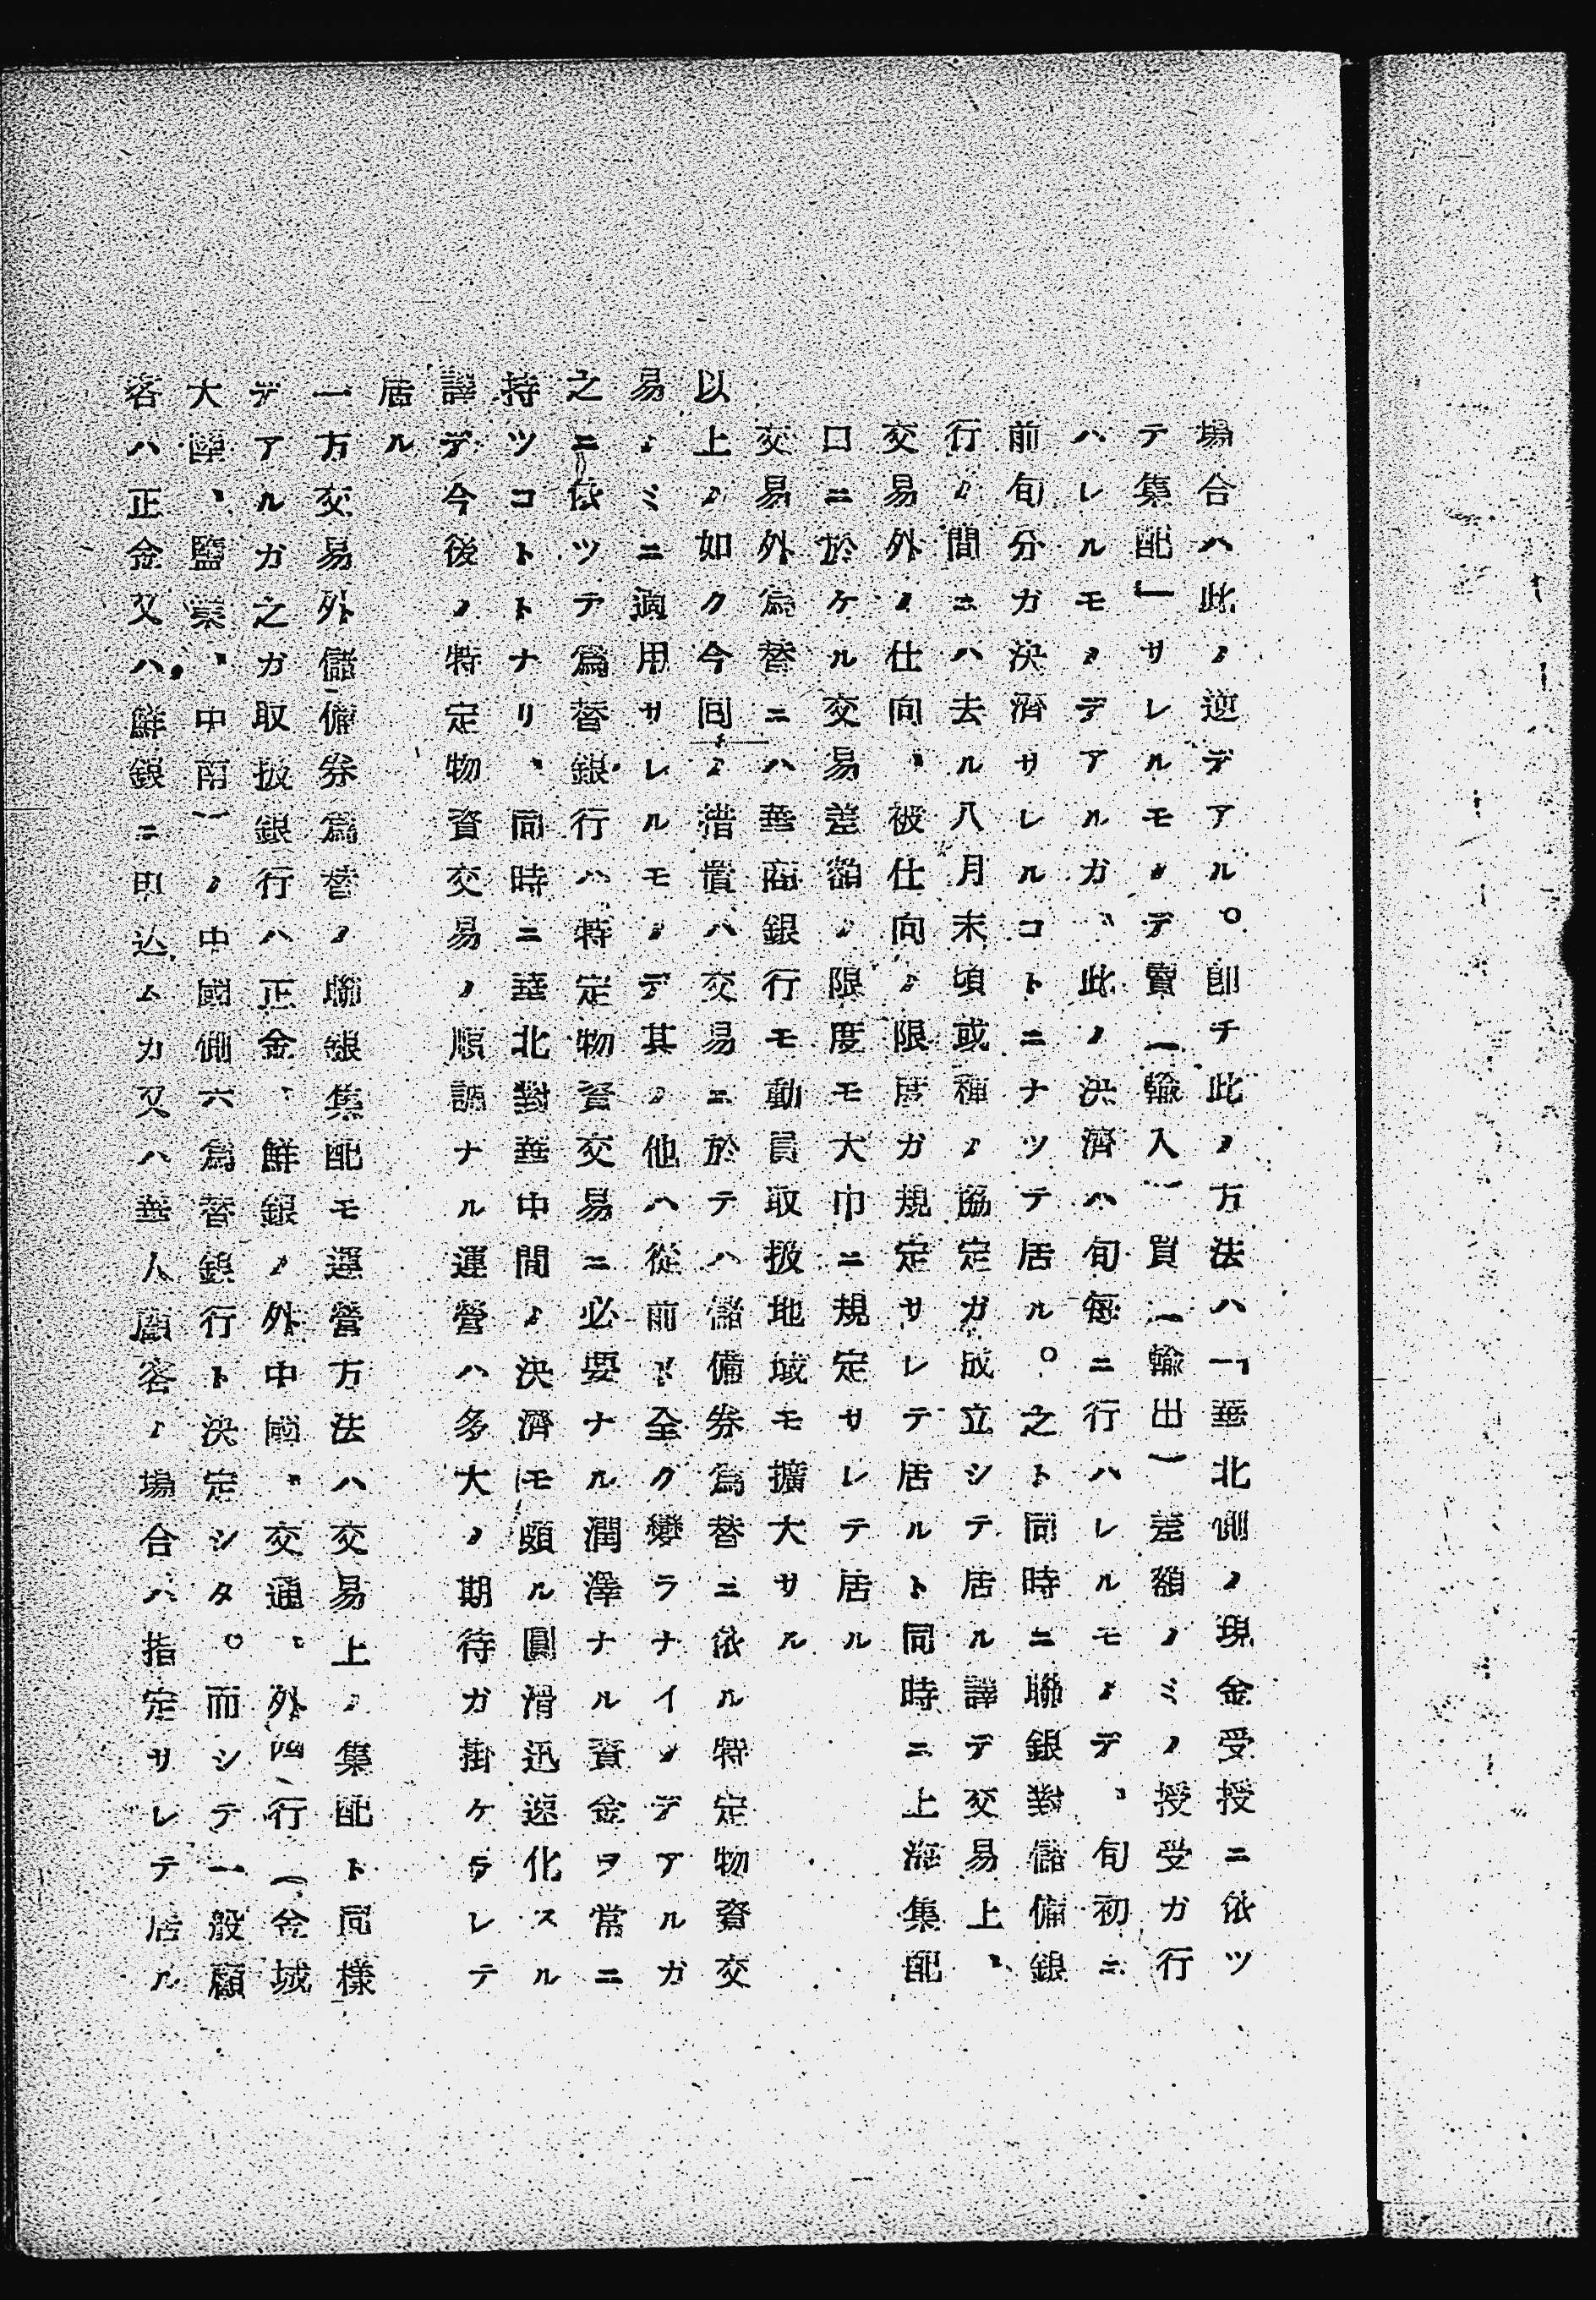 場合ハ此ノ逆デアル。卽チ此ノ方法ハ「華北側ノ現金受授ニ依ツ
テ集配」サレルモノデ賣(輸入)買(輸出)差額ノミノ授受ガ行
ハレルモノデアルガ、此ノ決濟ハ旬每ニ行ハレルモノデ、旬初ニ
前旬分ガ決濟サレルコトニナツテ居ル。之ト同時ニ聯銀對儲備銀
行ノ間ニハ去ル八月末頃或種ノ協定ガ成立シテ居ル譯テ交易上、
交易外ノ仕向、被仕向ノ限度ガ規定サレテ居ルト同時ニ上海集配
口ニ於ケル交易差額ノ限度モ大巾ニ規定サレテ居ル
交易外為替ニハ華商銀行モ動員取扱地域モ擴大サル
以上ノ如ク今囘ノ措置ハ交易ニ於テハ儲備券爲替ニ依ル特定物資交
易ノミニ適用サレルモノデ其ノ他ハ從前ト全グ變ラナイノデアルガ
之ニ依ツテ爲替銀行ハ特定物資交易ニ必要ナル潤澤ナル資金ヲ常ニ
持ツコトトナリ、同時ニ華北對華中間ノ決濟モ頗ル圓滑迅速化スル
譯デ今後ノ特定物資交易ノ順調ナル運營ハ多大ノ期待ガ掛ケラレテ
居ル
一方交易外儲備券爲替ノ聯銀集配モ運營方法ハ交易上ノ集配ト同樣
デアルガ之ガ取扱銀行ハ正金、鮮銀ノ外中國、交通、外四行(金城
大陸、鹽業、中南)ノ中國側六爲替銀行ト決定シタ。而シテ一般顧
客ハ正金又ハ鮮銀ニ申込ムカ又ハ華人顧客ノ場合ハ指定サレテ居ル